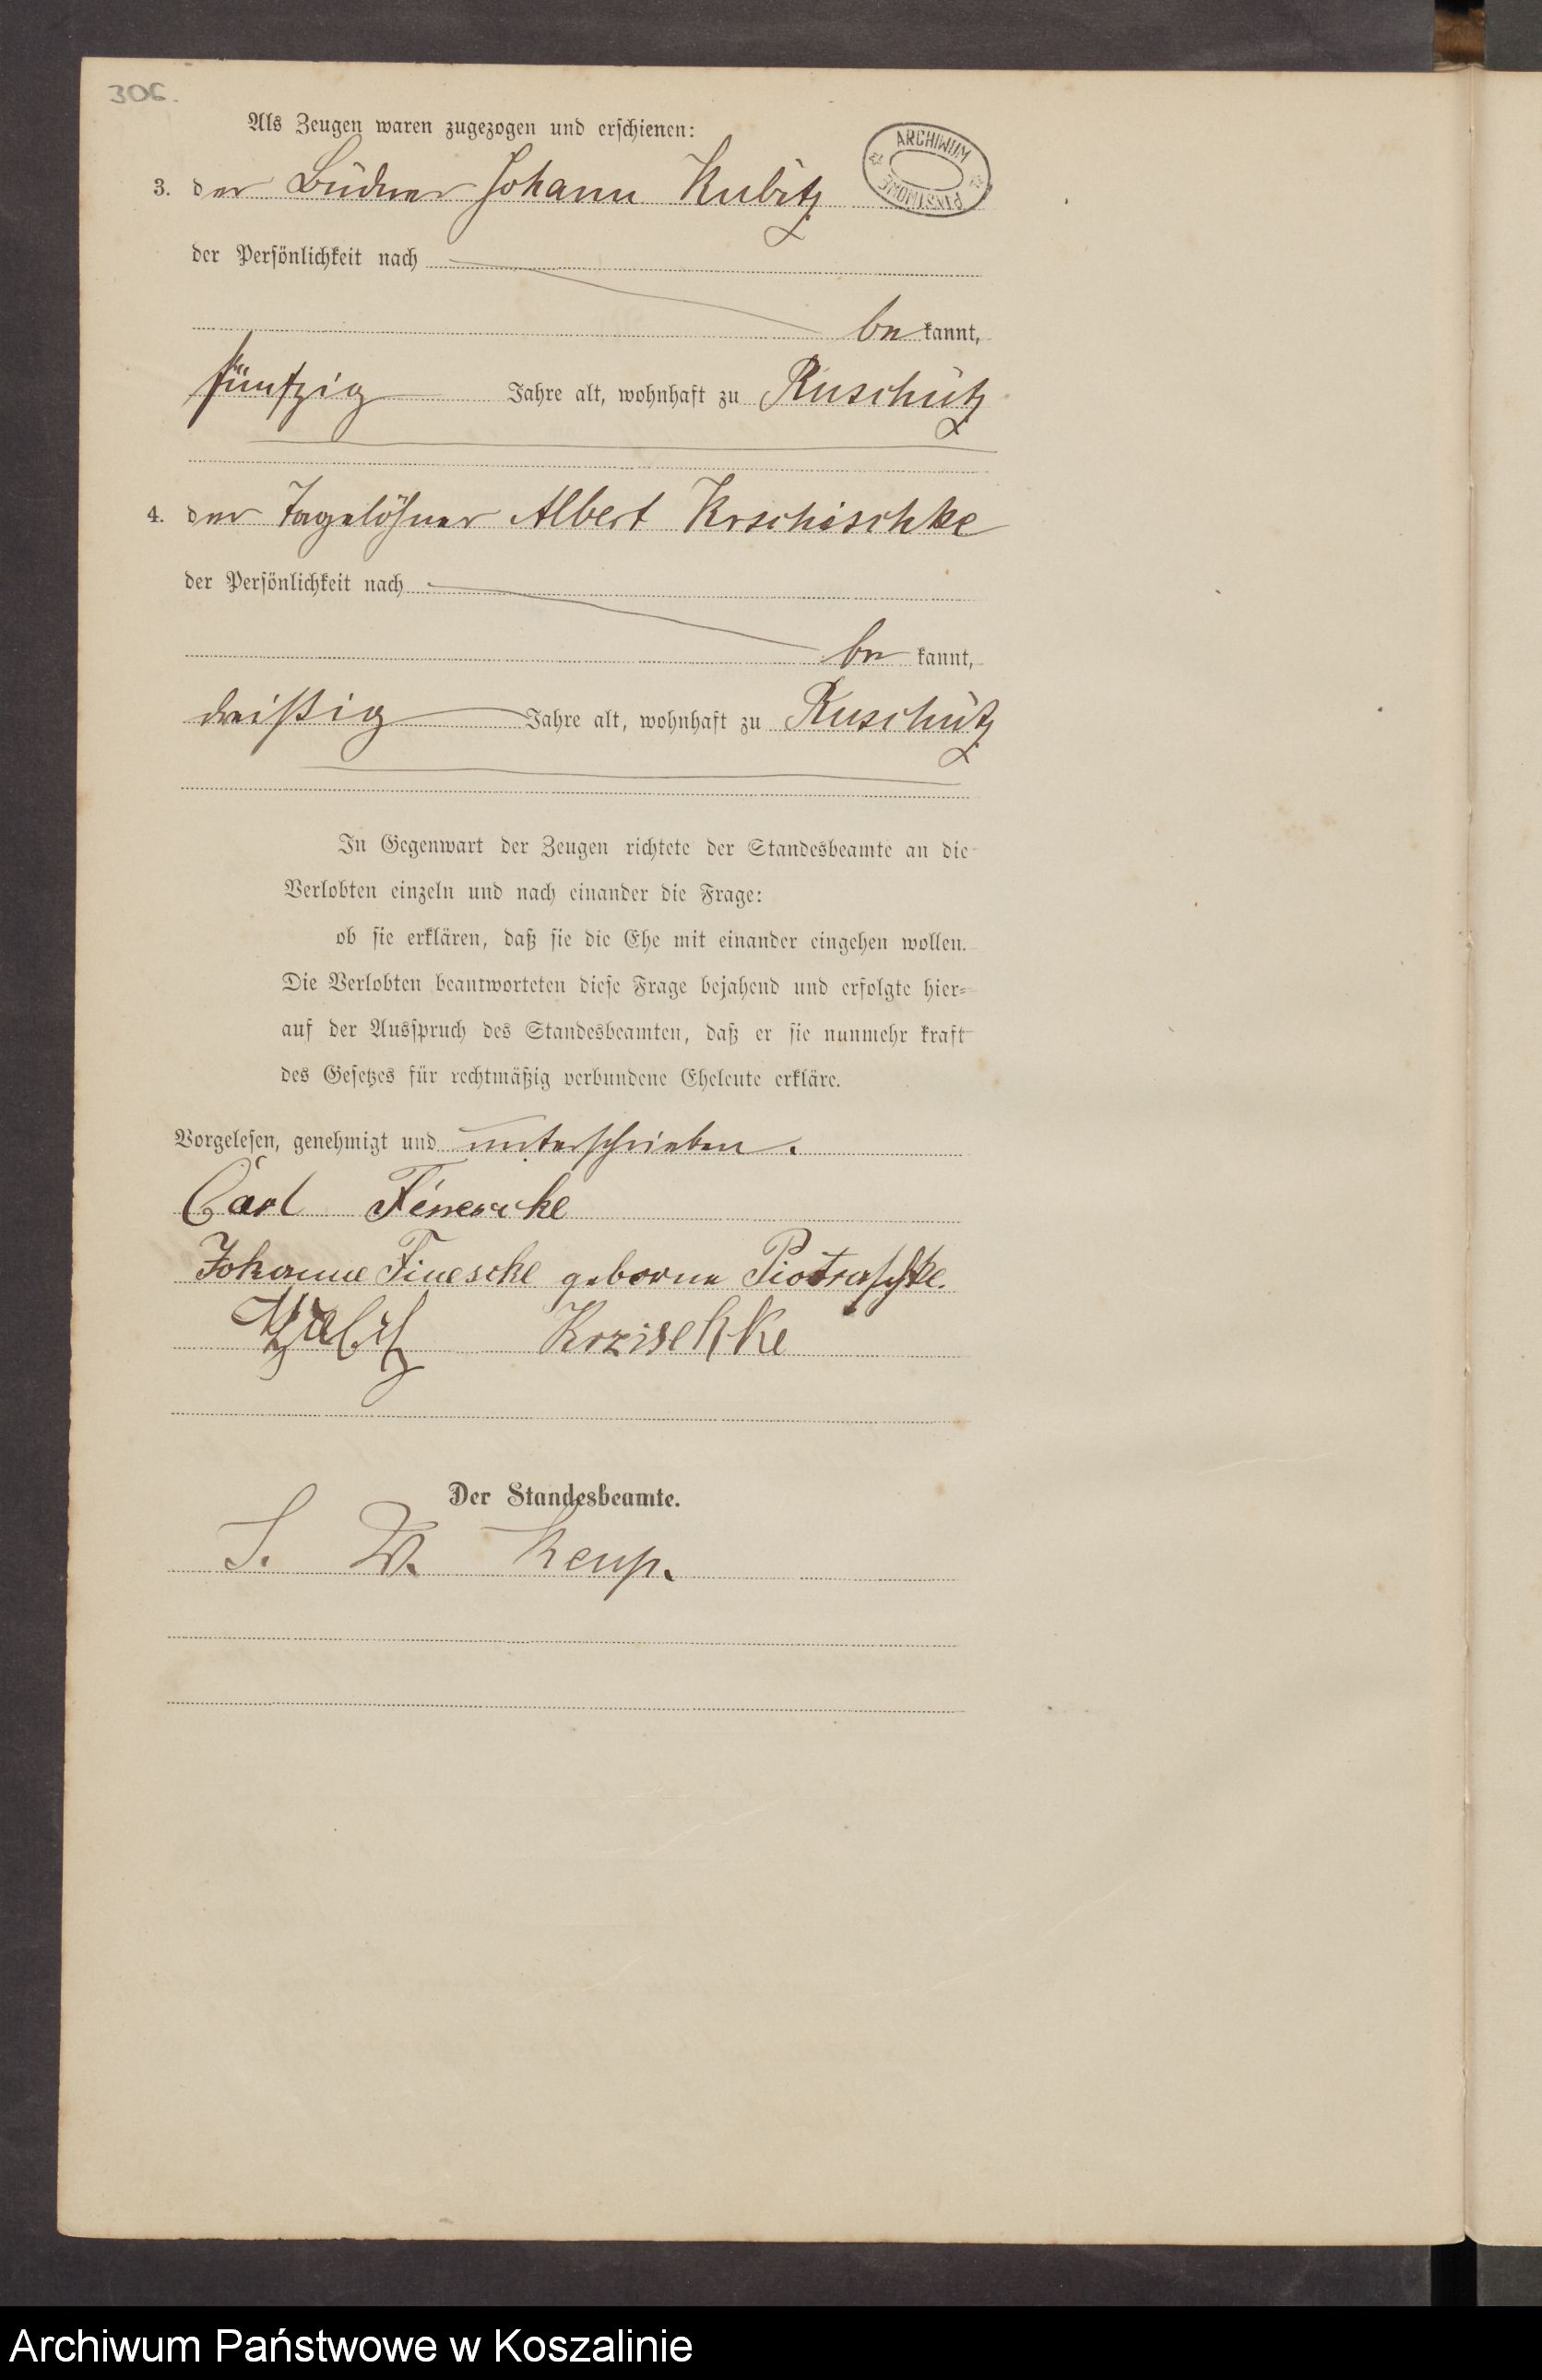 306.
Als Zeugen waren zugezogen und erschienen:
ARCHIWUM
PAŃSTWOWE
3. der Büdner Johann Kubitz
der Persönlichkeit nach
be kannt,
fünfzig Jahre alt, wohnhaft zu Ruschütz
4. der Tagelöhner Albert Krschischke
der Persönlichkeit nach
be kannt,
dreißig Jahre alt, wohnhaft zu Ruschütz
In Gegenwart der Zeugen richtete der Standesbeamte an die
Verlobten einzeln und nach einander die Frage:
ob sie erklären, daß sie die Ehe mit einander eingehen wollen.
Die Verlobten beantworteten diese Frage bejahend und erfolgte hier-
auf der Ausspruch des Standesbeamten, daß er sie nunmehr kraft
des Gesetzes für rechtmäßig verbundene Eheleute erkläre.
Vorgelesen, genehmigt und unterschrieben.
Carl
Johanne Finescke geborne Piotraschke.
Krzischke
Der Standesbeamte.
Keup.
Archiwum Państwowe w Koszalinie